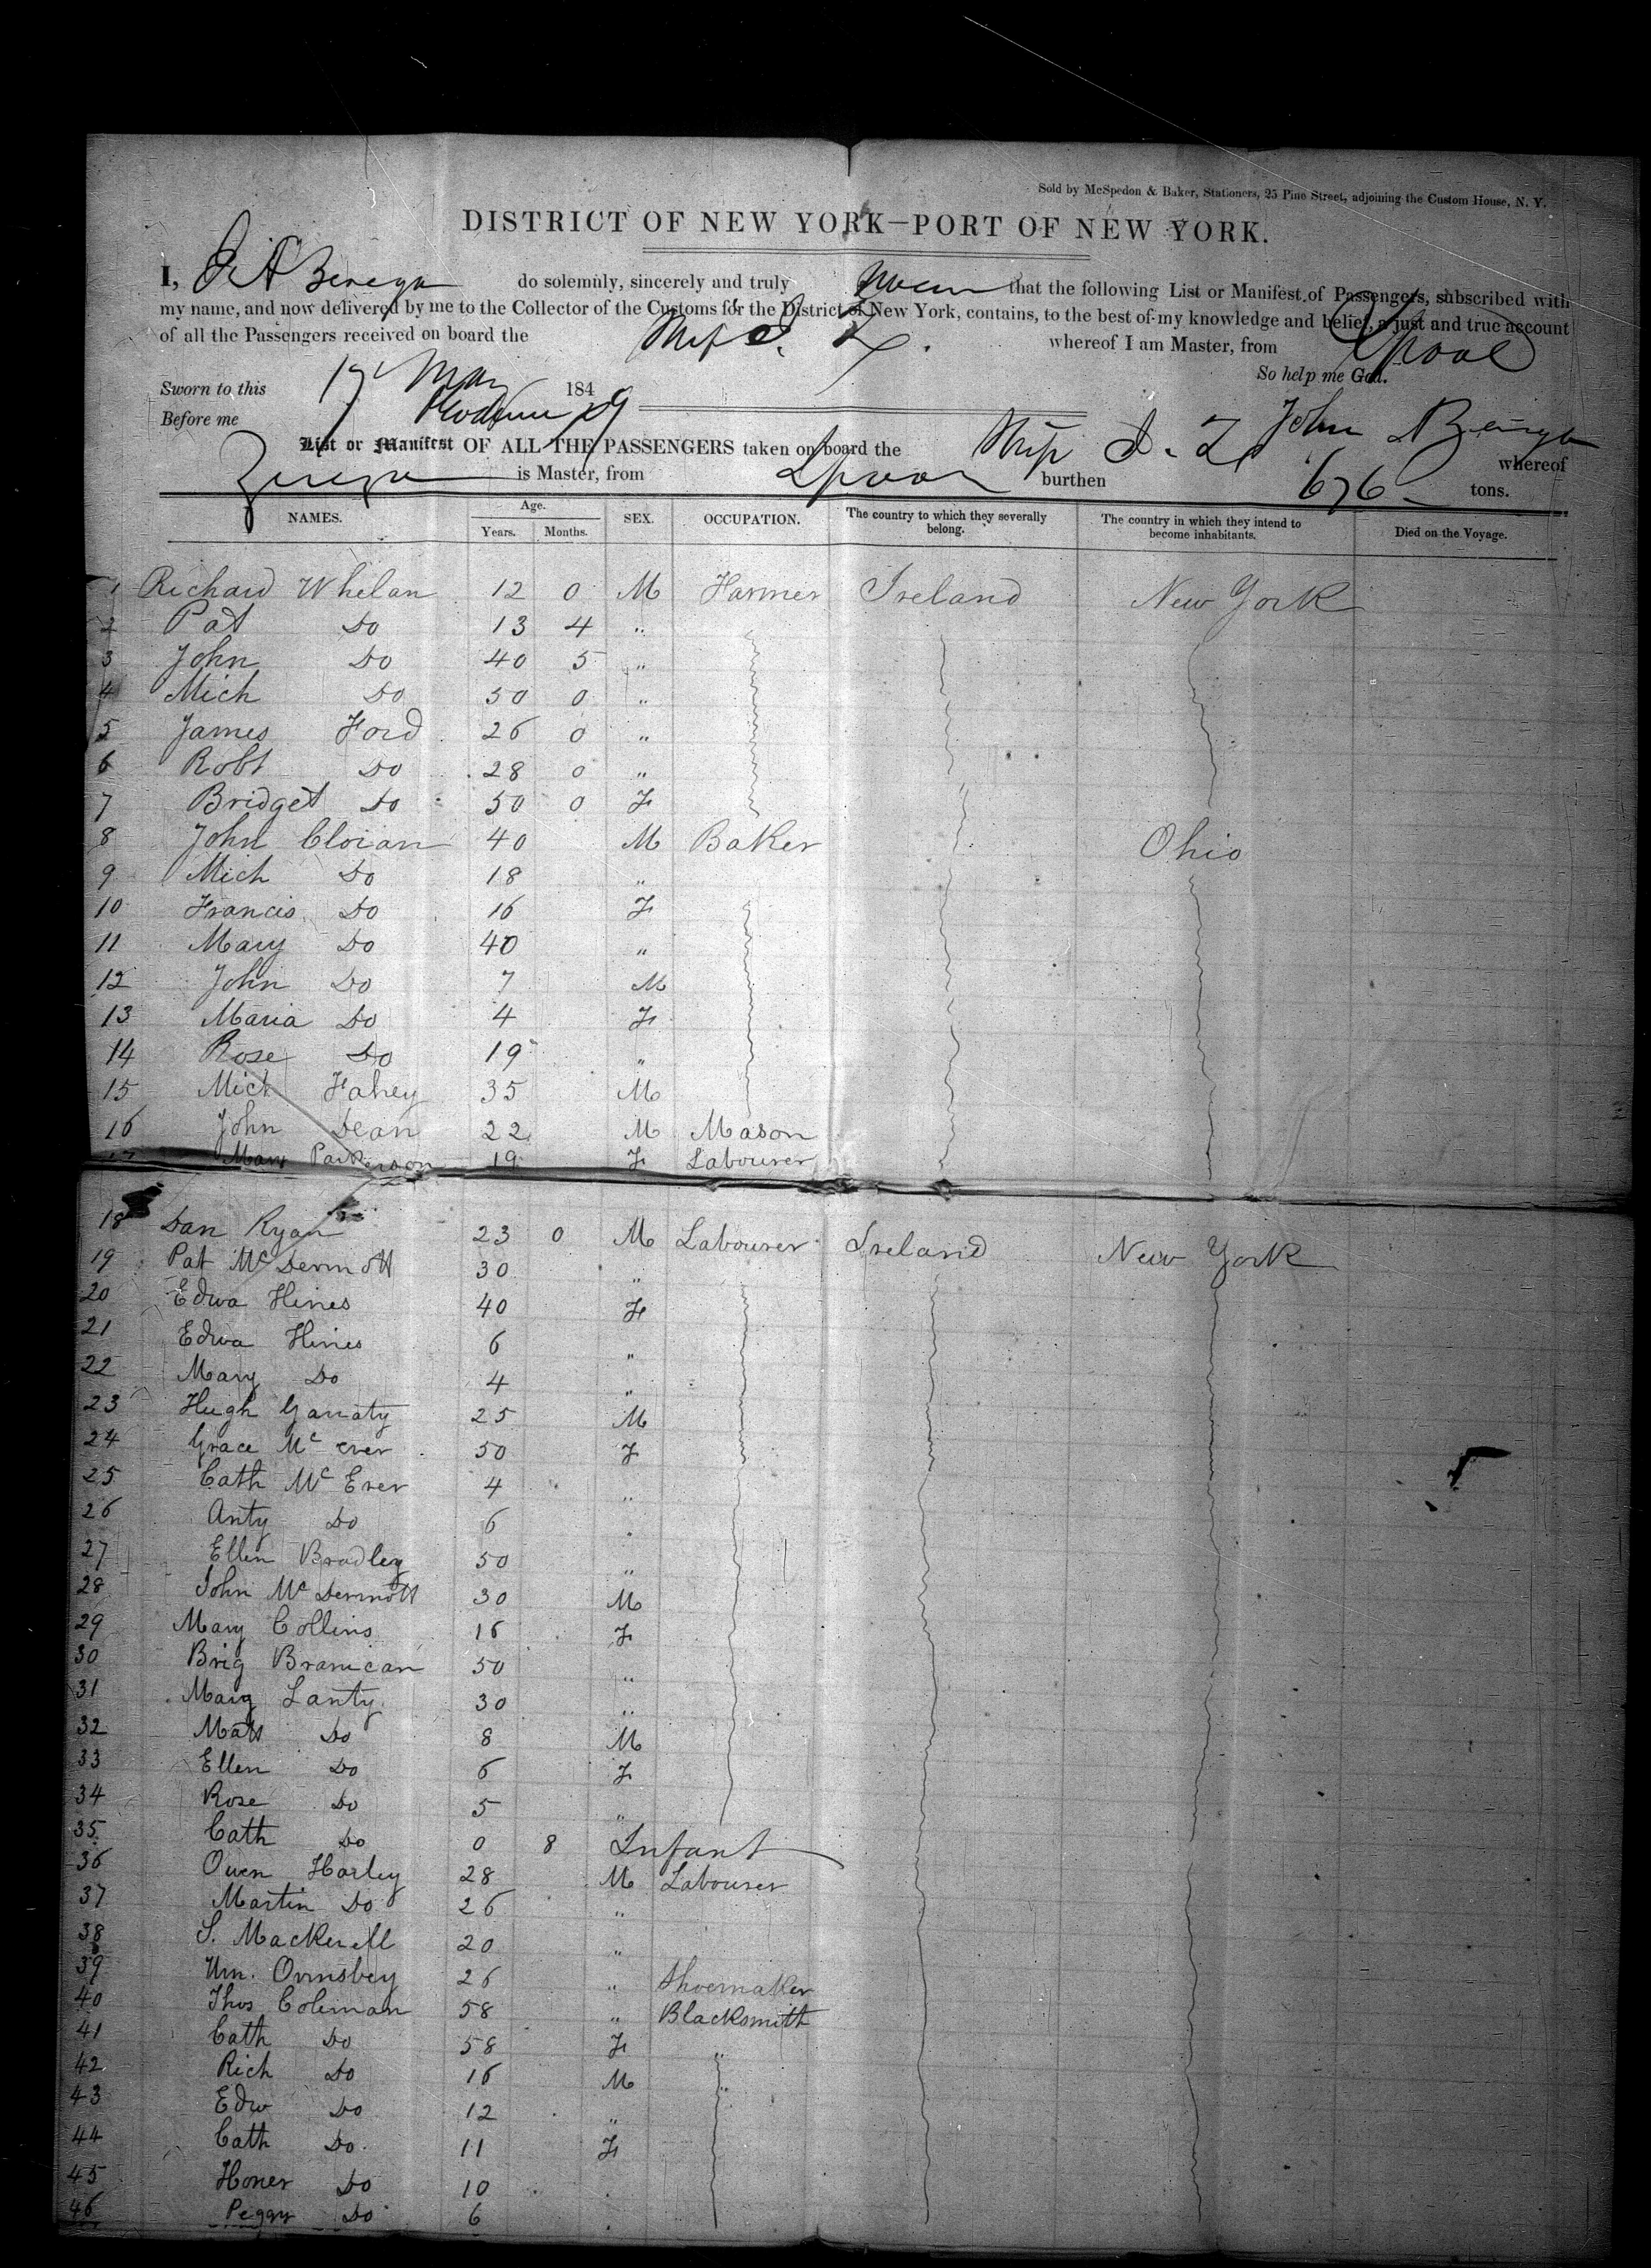 Sold by McSpedon & Baker, Stationers, 25 Pine Street, adjoining the Custom House, N. Y.
DISTRICT OF NEW YORK—PORT OF NEW YORK.
I, do solemnly, sincerely and truly that the following List or Manifest of Passengers, subscribed with
my name, and now delivered by me to the Collector of the Customs for the District of New York, contains, to the best of my knowledge and belief, a just and true account
of all the Passengers received on board the Ship whereof I am Master, from Lpool
So help me God.
Sworn to this 17 May 1849
Before me
List or Manifest OF ALL THE PASSENGERS taken on board the Ship I. Z. whereof
Zerega is Master, from Lpool burthen 676 tons.
NAMES. Age. Years. Months. SEX. OCCUPATION. The country to which they severally belong. The country in which they intend to become inhabitants. Died on the Voyage.
1 Richard Whelan 12 0 M Farmer Ireland New York
2 Pat Do 13 4 "
3 John Do 40 5 "
4 Mich Do 50 0 "
5 James Ford 26 0 "
6 Robt Do 28 0 "
7 Bridget Do 50 0 F
8 John Cloian 40 M Baker Ohio
9 Mich Do 18 "
10 Francis Do 16 F
11 Mary Do 40 "
12 John Do 7 M
13 Maria Do 4 F
14 Rose Do 19 "
15 Mich Fahey 35 M
16 John Dean 22 M Mason
17 Mary Parkerson 19 F Labourer
18 Dan Ryan 23 0 M Labourer Ireland New York
19 Pat McDermott 30 "
20 Edwa Hines 40 F
21 Edwa Hines 6 "
22 Mary Do 4 "
23 Hugh Garraty 25 M
24 Grace Mc ever 50 F
25 Cath McEver 4 "
26 Anty Do 6 "
27 Ellen Bradley 50 "
28 John McDermott 30 M
29 Mary Collins 16 F
30 Brig Branican 50 "
31 Marg Lanty 30 "
32 Matt Do 8 M
33 Ellen Do 6 F
34 Rose Do 5 "
35 Cath Do 0 8 Infant
36 Owen Harley 28 M Labourer
37 Martin Do 26 "
38 S. Mackerell 20 "
39 Wm. Ormsbey 26 " Shoemaker
40 Thos Coleman 58 " Blacksmith
41 Cath Do 58 F "
42 Rich Do 16 M "
43 Edw Do 12 "
44 Cath Do 11 F
45 Honer Do 10
46 Peggy Do 6